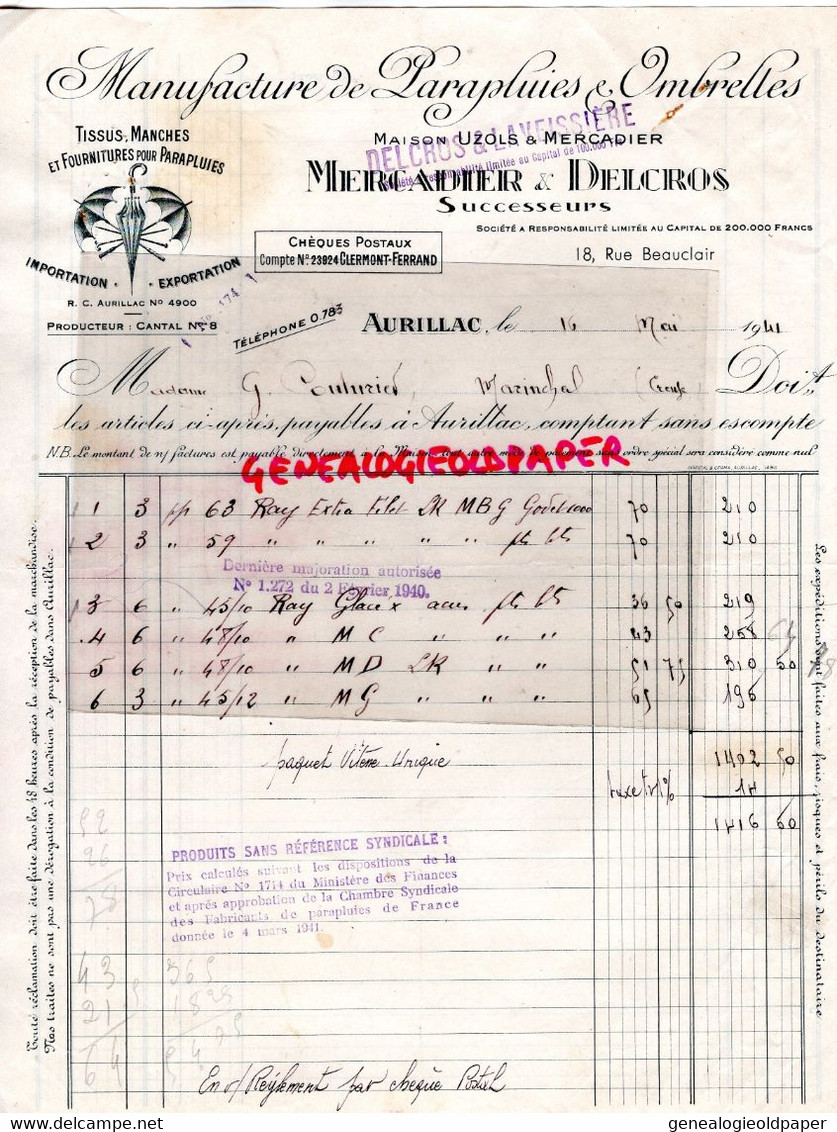 Manufacture de Parapluies & Ombrelles
TISSUS, MANCHES
ET FOURNITURES POUR PARAPLUIES
IMPORTATION - EXPORTATION
R. C. AURILLAC No 4900
PRODUCTEUR : CANTAL No 8
MAISON UZOLS & MERCADIER
DELCROS & LAVEISSIÈRE
Société à responsabilité limitée au Capital de 100.000 Frs
MERCADIER & DELCROS
Successeurs
SOCIÉTÉ A RESPONSABILITÉ LIMITÉE AU CAPITAL DE 200.000 FRANCS
CHÈQUES POSTAUX
Compte No 23924 CLERMONT-FERRAND
18, Rue Beauclair
No 174
TÉLÉPHONE 0.783
AURILLAC, le 16 Mai 1941
Madame G. Marinchal (Creuse) Doit
les articles ci-après, payables à Aurillac, comptant sans escompte
N.B. Le montant de n/ factures est payable directement à la Maison tout autre mode de paiement sans ordre spécial sera considéré comme nul
GENEALOGIEOLDPAPER
1 3 pp 63 Ray Extra Filet LR MBG Godet 1000 70 210
2 3 " 59 " " " " " pts bts 70 210
Dernière majoration autorisée
No 1.272 du 2 Février 1940.
3 6 " 45/10 Ray Glacex pts bts 36 50 219
4 6 " 48/10 " MC " " " 43 258
5 6 " 48/10 " MD LR " " 51 75 310 50
6 3 " 45/12 " MG " " " 65 196
paquet Unique 1402 50
taxe 1% 14
1416 60
PRODUITS SANS RÉFÉRENCE SYNDICALE :
Prix calculés suivant les dispositions de la
Circulaire No 1714 du Ministère des Finances
et après approbation de la Chambre Syndicale
des Fabricants de parapluies de France
donnée le 4 mars 1941.
52
26
78
43 365
21
64
En v/ Règlement par chèque Postal
Toute réclamation doit être faite dans les 48 heures après la réception de la marchandise.
Nos traites ne sont pas une dérogation à la condition de payables dans Aurillac.
Les expéditions sont faites aux frais, risques et périls du destinataire
genealogieoldpaper